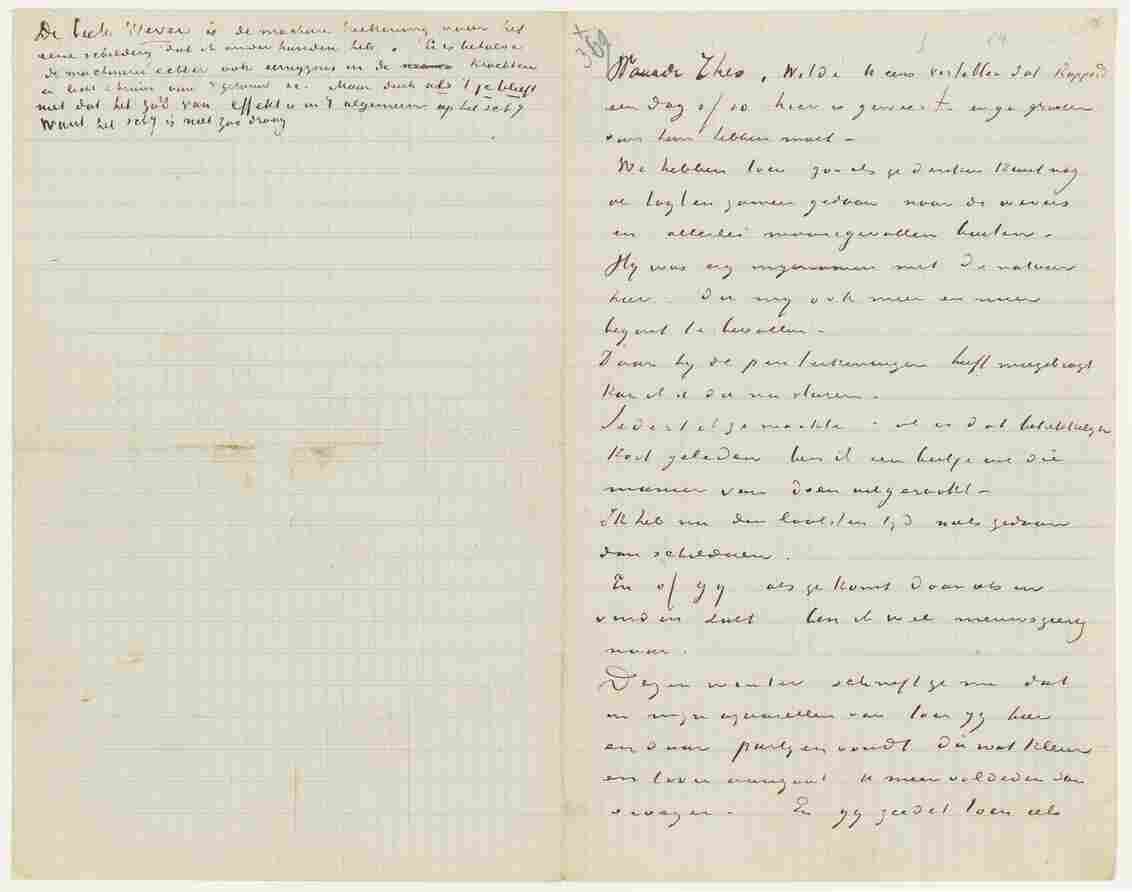 De Wever is de machine teekening naar het
eene schilderij dat ik onder handen heb. Er is behalve
de machinerie echter ook eenigzins in de krachten
en licht & bruin van 't Maar denk als 't je blieft
niet dat het zoo van effekt is in 't algemeen op het schij
want het schij is niet zoo droog
Waarde Theo, Wilde U eens vertellen dat Rappard
een dag of 10 hier is geweest. en ge groeten
van hem hebben moet –
We hebben toen zooals ge denken kunt nog
al togten zamen gedaan naar de wevers
en allerlei mooie gevallen buiten.
Hij was erg ingenomen met de natuur
hier. die mij ook meer en meer
begint te bevallen –
Daar hij de penteekeningen heeft meegebragt
kan ik U die nu sturen.
Sedert ik ze maakte – al is dat betrekkelijk
kort geleden ben ik een beetje uit die
manier van doen uitgeraakt –
Ik heb nu den laatsten tijd niets gedaan
dan schilderen.
En of gij als ge komt daar iets in
vinden zult ben ik wel nieuwsgierig
naar.
Dezen winter schreeft ge me dat
in mijn aquarellen van toen gij hier
en daar partijen vondt die wat kleur
en toon aangaat U meer voldeden dan
vroeger – En gij zeidet toen als